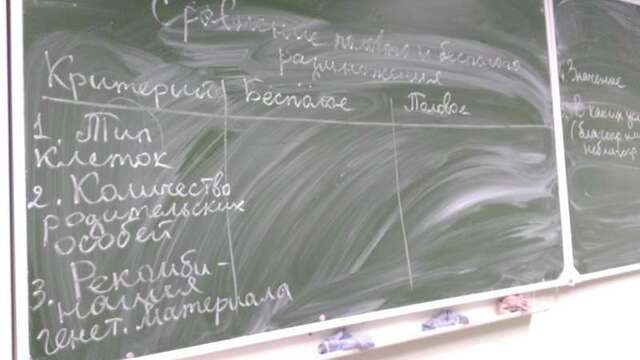 Сравнение полового и бесполого
размножения
Критерий Бесполое Половое
1. Тип
клеток
2. Количество
родительских
особей
3. Рекомби-
нация
генет. материала
Значение
В каких
(благопр
неблагопр